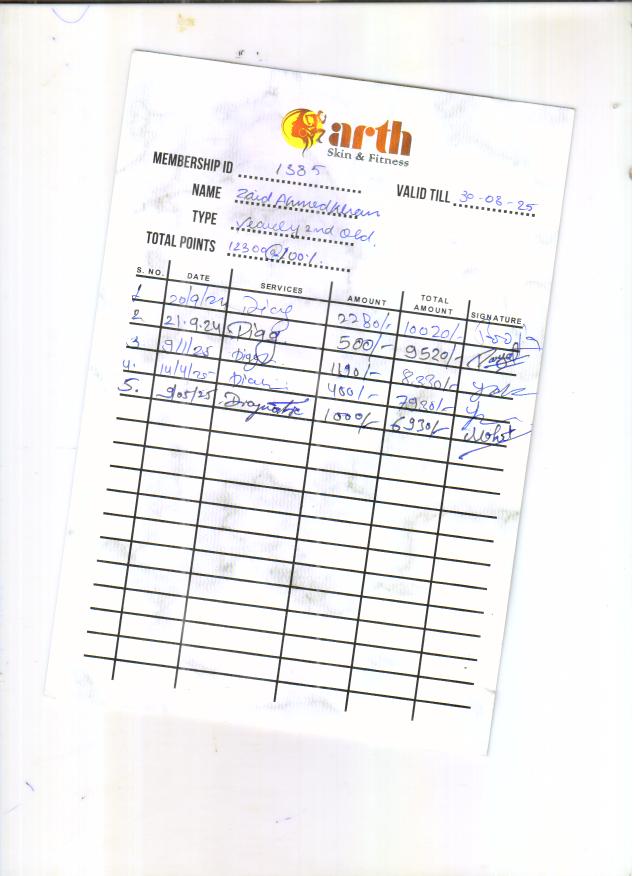 arth
Skin & Fitness
MEMBERSHIP ID 1385
VALID TILL 30-08-25
NAME Zaid Ahmed Khan
TYPE Yearly 2nd Old.
TOTAL POINTS 12300@100%.
S. NO. DATE SERVICES AMOUNT TOTAL AMOUNT SIGNATURE
1 20/9/24 2280/- 10020/-
2 21.9.24 500/- 9520/-
3 9/1/25 1190/- 8330/-
4. 14/4/25 400/- 7930/-
5. 9/05/25 Diagnostic 1000/- 6930/- Mohit